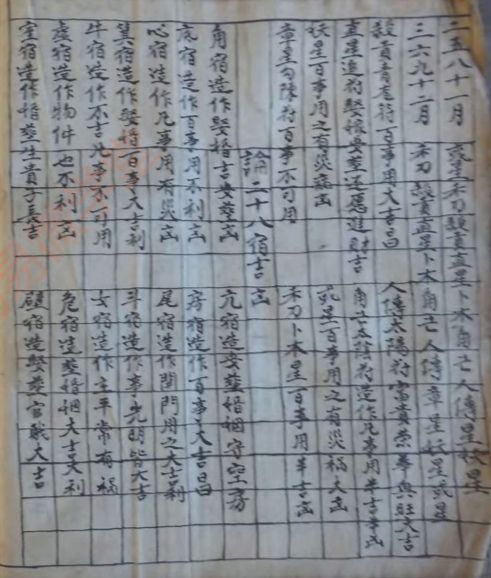 二五八十一月 或星禾刀煞貢直星卜木角亡人傳星妖星
三六九十二月 禾刀煞貢直星卜木角亡人傳章星妖星或星
煞貢青龍符百事用大吉昌 人傳太陽符富貴榮華興旺大吉
直星追符娶嫁安葬还愿進財吉 角亡太陰符造作凡事用半吉半凶
妖星百事用之有災禍凶 或星一百事用之有災禍大凶
章星勾陳符百事不可用 禾刀卜木星一百事用半吉凶
論二十八宿吉凶
角宿造作娶婚吉安葬凶 亢宿造安葬婚姻守空房
底宿造作百事用不利凶 房宿造作百事大吉昌
心宿造作凡事用有災凶 尾宿造作開門用之大吉利
箕宿造作娶婚百事大吉利 斗宿造作事光明皆大吉
牛宿造作不吉凡事不可用 女宿造作主平常有禍
虛宿造作物件也不利凶 危宿造葬婚姻大吉大利
室宿造作婚葬生貴子長吉 壁宿造娶葬官職大吉